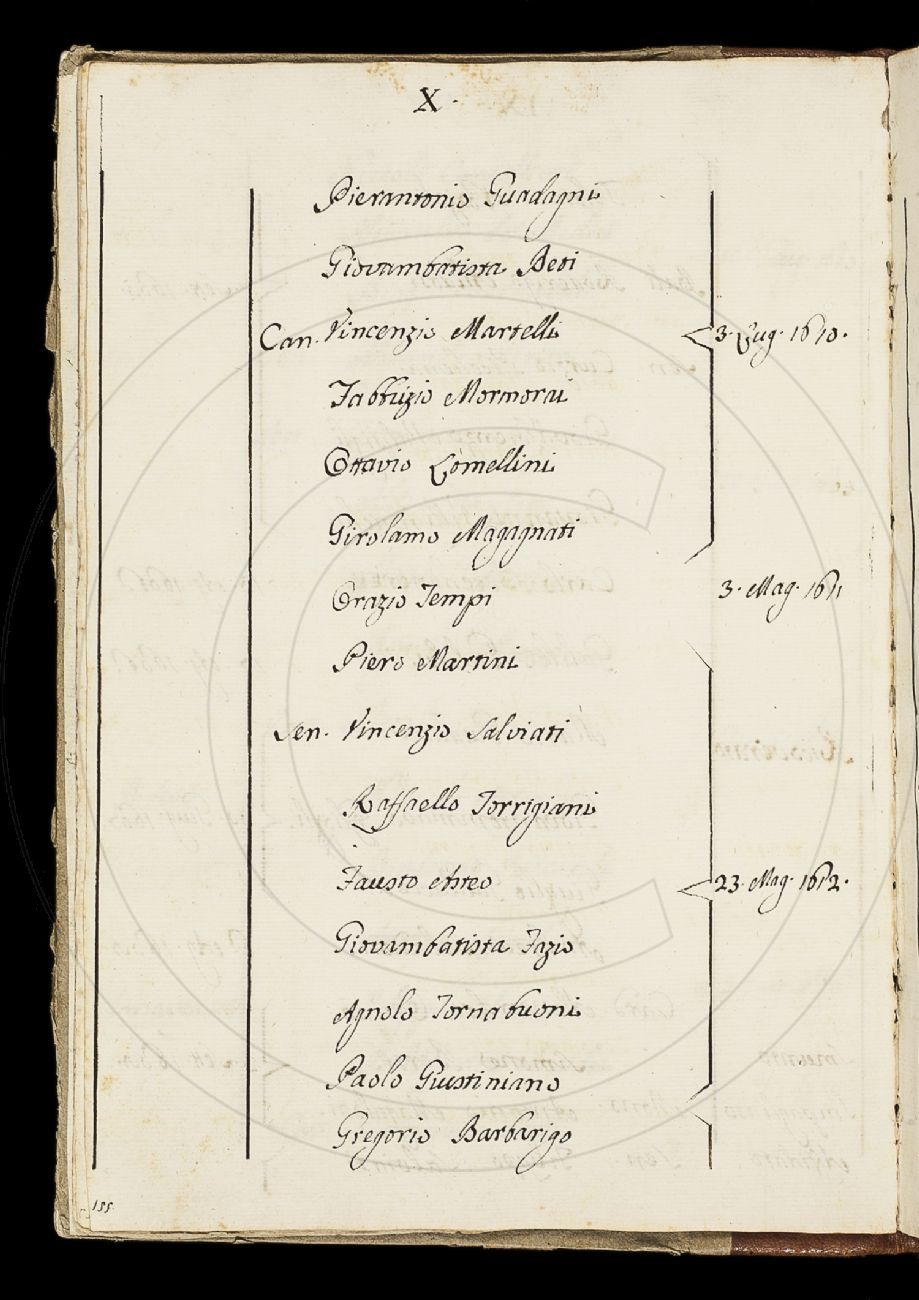 X.
Pierantonio Guadagni
Giovambatista Deti
Can. Vincenzio Martelli 3. Lug. 1610.
Fabbrizio Mormorai
Ottavio Lomellini
Girolamo Magagnati
Orazio Tempi 3. Mag. 1611
Piero Martini
Sen. Vincenzio Salviati
Raffaello Torrigiani
Fausto Asteo 23. Mag. 1612.
Giovambatista Fazio
Agnolo Tornabuoni
Paolo Giustiniano
Gregorio Barbarigo
155.